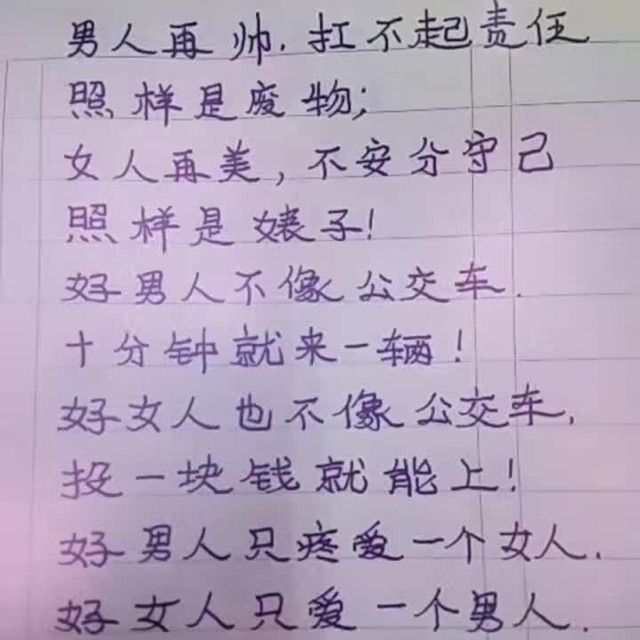 男人再帅,扛不起责任
照样是废物;
女人再美,不安分守己
照样是婊子!
好男人不像公交车.
十分钟就来一辆!
好女人也不像公交车,
投一块钱就能上!
好男人只疼爱一个女人.
好女人只爱一个男人.